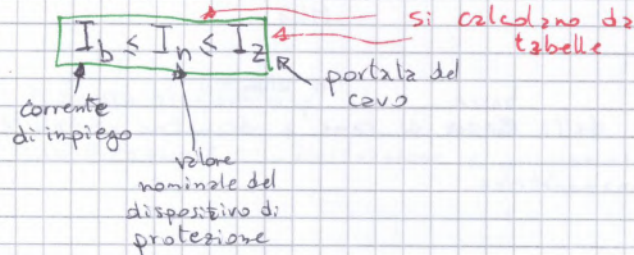 si calcolano da
tabelle
Ib ≤ In ≤ Iz
portata del
cavo
corrente
di impiego
valore
nominale del
dispositivo di
protezione